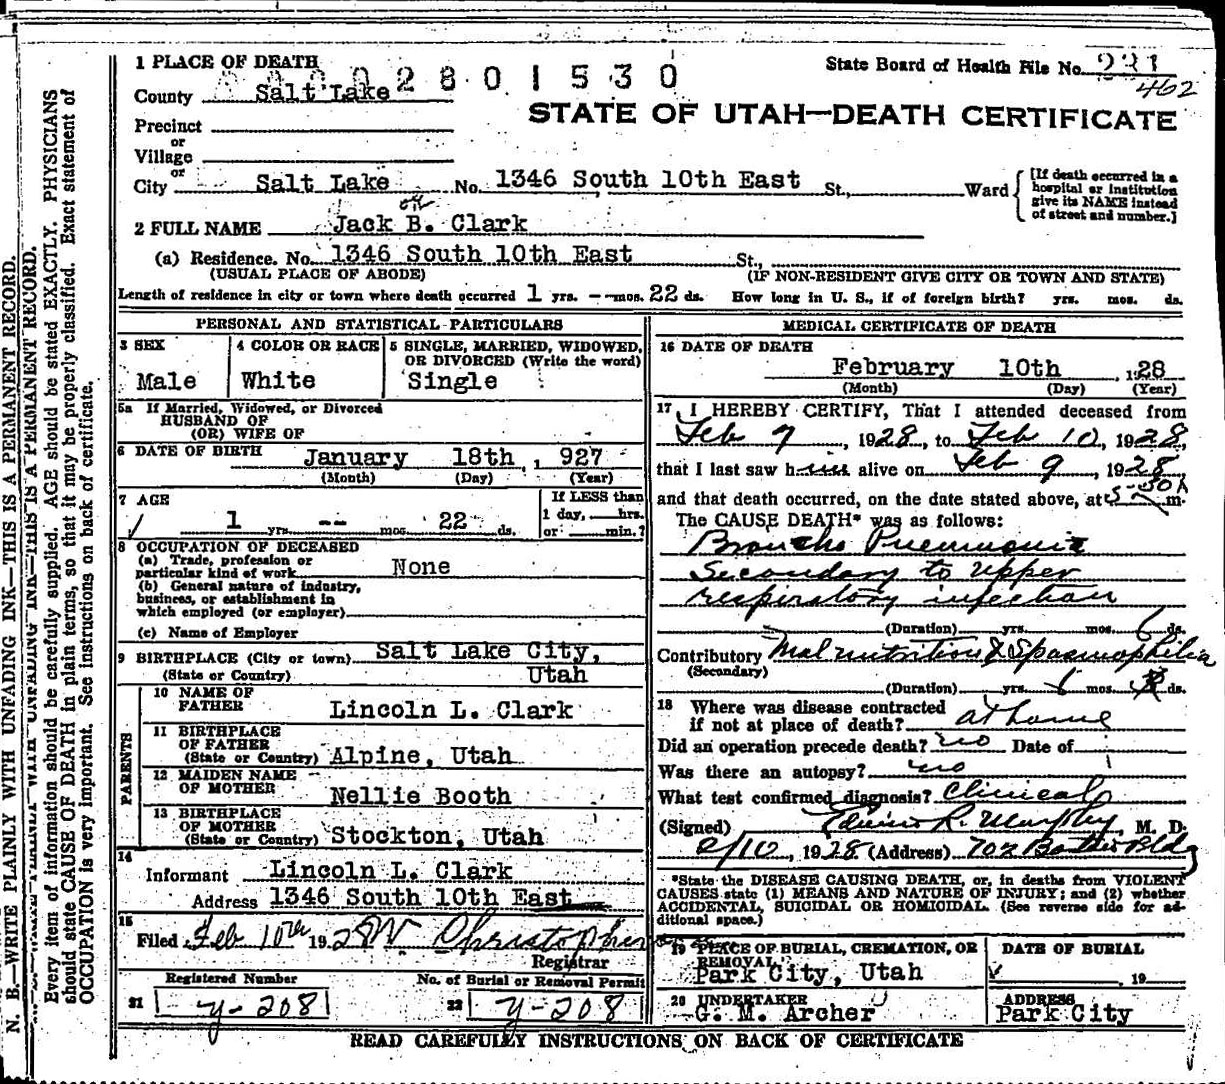 1 PLACE OF DEATH
2 8 0 1 5 3 0
State Board of Health File No. 231
462
County Salt Lake
STATE OF UTAH—DEATH CERTIFICATE
Precinct
or
Village
or
City Salt Lake No. 1346 South 10th East St., Ward
[If death occurred in a hospital or institution give its NAME instead of street and number.]
2 FULL NAME Jack B. Clark
(a) Residence. No. 1346 South 10th East St.,
(USUAL PLACE OF ABODE) (IF NON-RESIDENT GIVE CITY OR TOWN AND STATE)
Length of residence in city or town where death occurred 1 yrs. -- mos. 22 ds. How long in U. S., if of foreign birth? yrs. mos. ds.
PERSONAL AND STATISTICAL PARTICULARS
3 SEX
Male
4 COLOR OR RACE
White
5 SINGLE, MARRIED, WIDOWED,
OR DIVORCED (Write the word)
Single
5a If Married, Widowed, or Divorced
HUSBAND OF
(OR) WIFE OF
6 DATE OF BIRTH January 18th , 927
(Month) (Day) (Year)
7 AGE
1 yrs. -- mos. 22 ds.
If LESS than
1 day, hrs.
or min.?
8 OCCUPATION OF DECEASED
(a) Trade, profession or
particular kind of work None
(b) General nature of industry,
business, or establishment in
which employed (or employer)
(c) Name of Employer
9 BIRTHPLACE (City or town) Salt Lake City,
(State or Country) Utah
PARENTS
10 NAME OF
FATHER Lincoln L. Clark
11 BIRTHPLACE
OF FATHER
(State or Country) Alpine, Utah
12 MAIDEN NAME
OF MOTHER Nellie Booth
13 BIRTHPLACE
OF MOTHER
(State or Country) Stockton, Utah
14
Informant Lincoln L. Clark
Address 1346 South 10th East
15
Filed Feb 10th 1928 W Christopherson
Registrar
Registered Number
21 y-208
No. of Burial or Removal Permit
22 y-208
MEDICAL CERTIFICATE OF DEATH
16 DATE OF DEATH
February 10th , 1928
(Month) (Day) (Year)
17 I HEREBY CERTIFY, That I attended deceased from
Feb 9, 1928, to Feb 10, 1928,
that I last saw him alive on Feb 9, 1928
and that death occurred, on the date stated above, at 5-30A m.
The CAUSE DEATH* was as follows:
Broncho Pneumonia
Secondary to upper
respiratory infection
(Duration) yrs. mos. 6 ds.
Contributory Malnutrition & Spasmophilia
(Secondary)
(Duration) yrs. 6 mos. ds.
18 Where was disease contracted
if not at place of death? at home
Did an operation precede death? no Date of
Was there an autopsy? no
What test confirmed diagnosis? Clinical
(Signed) Edwin R. Murphy, M. D.
2/10, 1928 (Address) 702 Boston Bldg
*State the DISEASE CAUSING DEATH, or, in deaths from VIOLENT
CAUSES, state (1) MEANS AND NATURE OF INJURY; and (2) whether
ACCIDENTAL, SUICIDAL OR HOMICIDAL. (See reverse side for ad-
ditional space.)
19 PLACE OF BURIAL, CREMATION, OR
REMOVAL
Park City, Utah
DATE OF BURIAL
, 19
20 UNDERTAKER
G. M. Archer
ADDRESS
Park City
READ CAREFULLY INSTRUCTIONS ON BACK OF CERTIFICATE
N. B.—WRITE PLAINLY WITH UNFADING INK—THIS IS A PERMANENT RECORD.
Every item of information should be carefully supplied. AGE should be stated EXACTLY. PHYSICIANS
should state CAUSE OF DEATH in plain terms, so that it may be properly classified. Exact statement of
OCCUPATION is very important. See instructions on back of certificate.